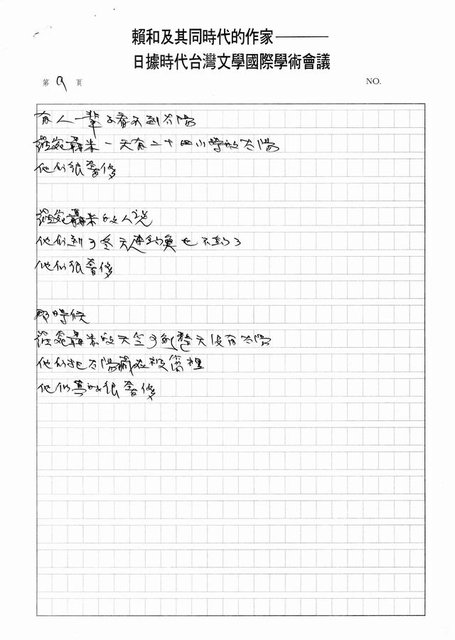 賴和及其同時代的作家———
日據時代台灣文學國際學術會議
第 9 頁
NO.
有人一輩子看不到太陽
一天有二十四小時的太陽
他們很奢侈
的人說
他們到了冬天連 也 不到了
他們很奢侈
那時候
的天空 整天沒有太陽
他們把太陽藏在被窩裡
他們真的很奢侈